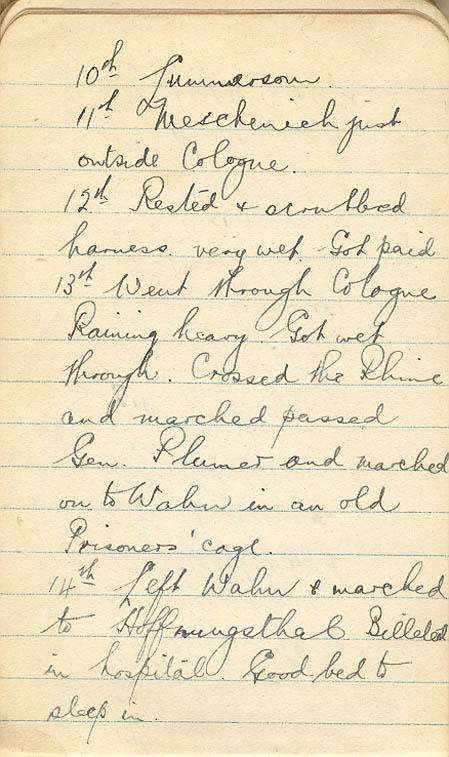 10th Lummersom.
11th Meschenich just
outside Cologne.
12th Rested & scrubbed
harness. very wet. Got paid
13th Went through Cologne
Raining heavy. Got wet
through. Crossed the Rhine
and marched passed
Gen. Plumer and marched
on to Wahn in an old
Prisoners' cage.
14th Left Wahn & marched
to Hoffnungsthal Billeted
in hospital. Good bed to
sleep in.